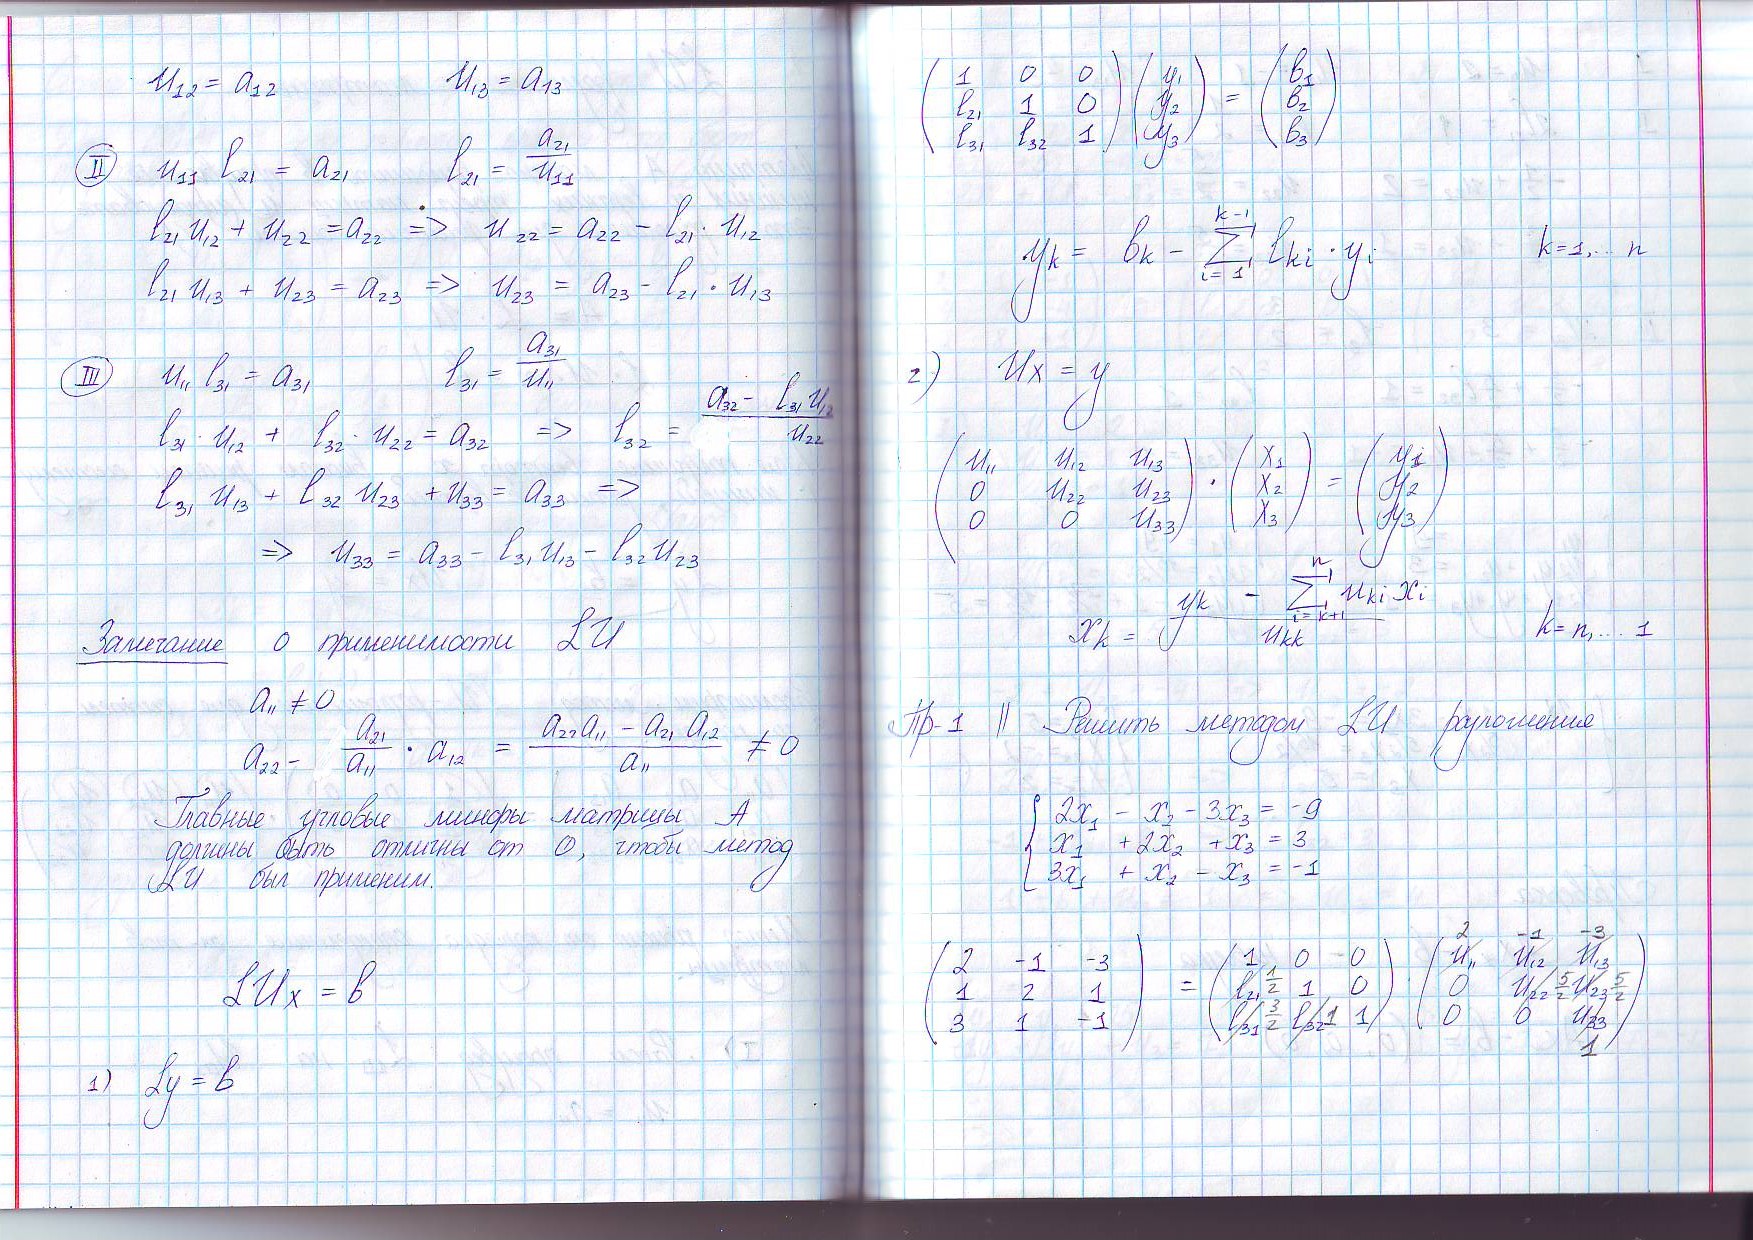 u₁₂ = a₁₂ u₁₃ = a₁₃
II u₁₁ l₂₁ = a₂₁ l₂₁ = a₂₁/u₁₁
l₂₁ u₁₂ + u₂₂ = a₂₂ => u₂₂ = a₂₂ - l₂₁ · u₁₂
l₂₁ u₁₃ + u₂₃ = a₂₃ => u₂₃ = a₂₃ - l₂₁ · u₁₃
III u₁₁ l₃₁ = a₃₁ l₃₁ = a₃₁/u₁₁
l₃₁ · u₁₂ + l₃₂ · u₂₂ = a₃₂ => l₃₂ = (a₃₂ - l₃₁ u₁₂)/u₂₂
l₃₁ u₁₃ + l₃₂ u₂₃ + u₃₃ = a₃₃ =>
=> u₃₃ = a₃₃ - l₃₁ u₁₃ - l₃₂ u₂₃
Замечание о применимости LU
a₁₁ ≠ 0
a₂₂ - a₂₁/a₁₁ · a₁₂ = (a₂₂a₁₁ - a₂₁a₁₂)/a₁₁ ≠ 0
Главные угловые миноры матрицы A
должны быть отличны от 0, чтобы метод
LU был применим.
LUx = b
1) Ly = b
(1 0 0) (y₁) (b₁)
(l₂₁ 1 0) (y₂) = (b₂)
(l₃₁ l₃₂ 1) (y₃) (b₃)
yₖ = bₖ - ∑ᵢ₌₁ᵏ⁻¹ lₖᵢ · yᵢ k=1,... n
2) Ux = y
(u₁₁ u₁₂ u₁₃) (x₁) (y₁)
(0 u₂₂ u₂₃) · (x₂) = (y₂)
(0 0 u₃₃) (x₃) (y₃)
xₖ = (yₖ - ∑ᵢ₌ₖ₊₁ⁿ uₖᵢ xᵢ)/uₖₖ k=n,... 1
Пр-1 || Решить методом LU разложения
2x₁ - x₂ - 3x₃ = -9
x₁ + 2x₂ + x₃ = 3
3x₁ + x₂ - x₃ = -1
2 -1 -3
(2 -1 -3) (1 0 0) (u₁₁ u₁₂ u₁₃)
(1 2 1) = (l₂₁ 1/2 1 0) · (0 u₂₂ 5/2 u₂₃ 5/2)
(3 1 -1) (l₃₁ 3/2 l₃₂ 1 1) (0 0 u₃₃)
1